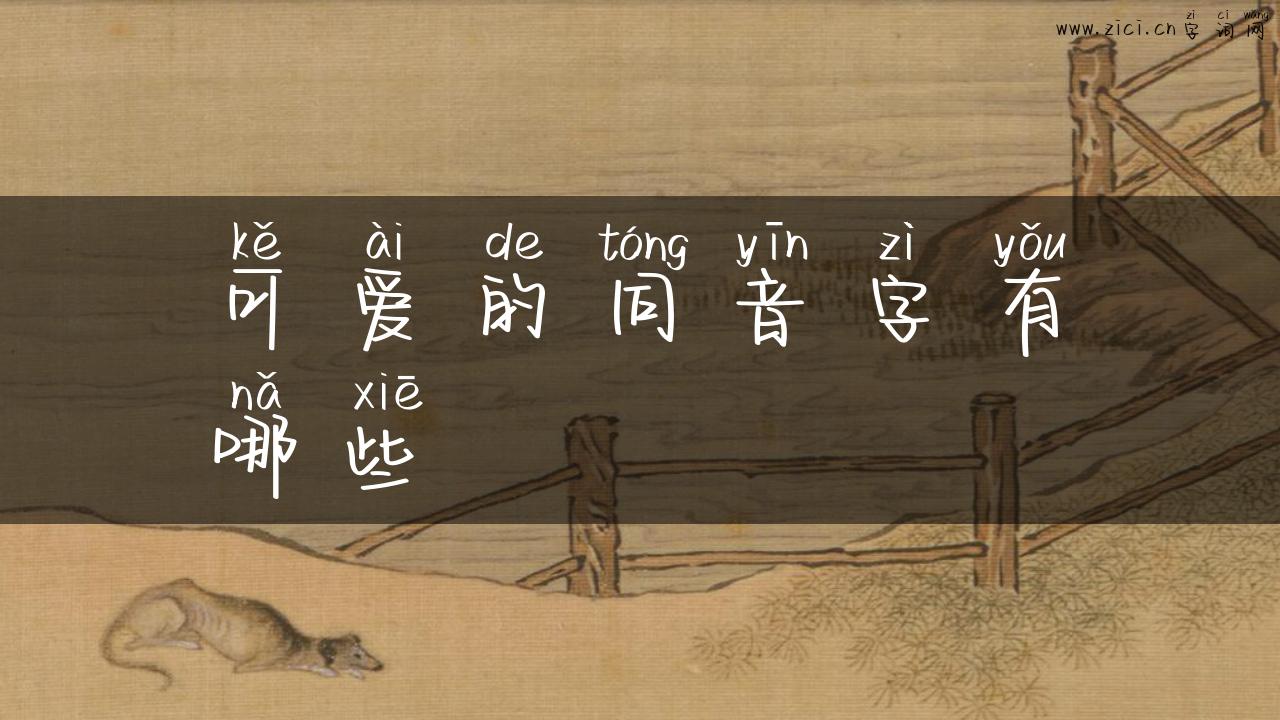 zi ci wang
www.zici.cn 字词网
kě ài de tóng yīn zì yǒu
可爱的同音字有
nǎ xiē
哪些